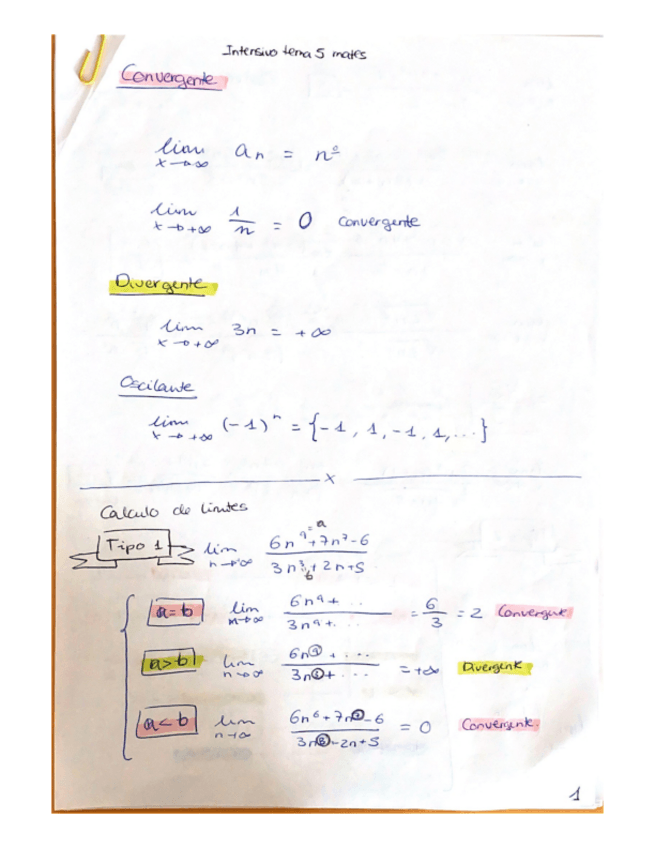 Intensivo tema 5 mates
Convergente
lim x→∞ an = nº
lim x→+∞ 1/n = 0 Convergente
Divergente
lim x→+∞ 3n = +∞
Oscilante
lim x→+∞ (-1)^n = {-1, 1, -1, 1, ...}
x
Calculo de limites
Tipo 1 lim n→∞ (6n^9=a + 7n^7 - 6)/(3n + 2n + 5) b
a=b lim n→∞ (6n^9 + ..)/(3n^9 + ...) = 6/3 = 2 Convergente
a>b lim n→∞ (6n + ...)/(3n + ...) = +∞ Divergente
a<b lim n→∞ (6n^6 + 7n - 6)/(3n^8 - 2n + 5) = 0 Convergente.
1